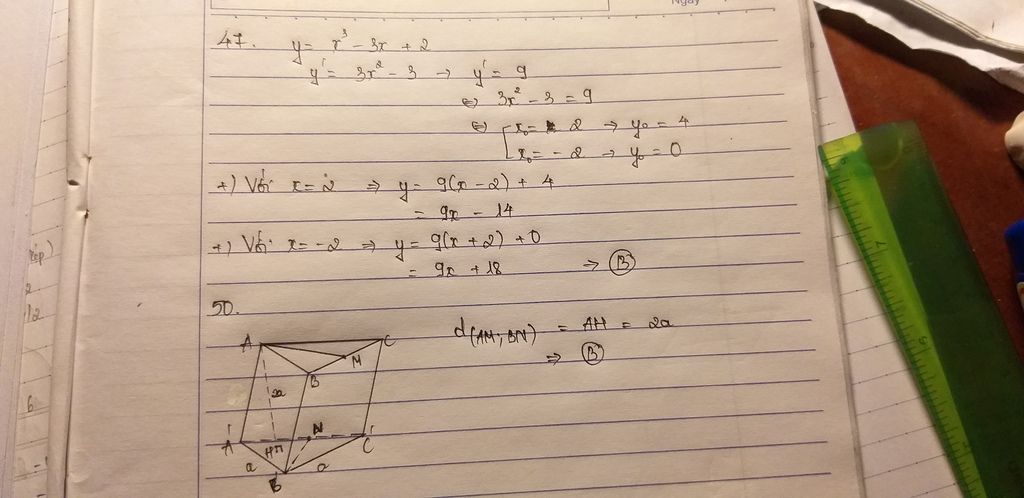 Ngày
47. y = x³ - 3x + 2
y' = 3x² - 3 → y' = 9
⇔ 3x² - 3 = 9
⇔ [ x₀ = 2 → y₀ = 4
x₀ = -2 → y₀ = 0
+) Với x = 2 ⇒ y = 9(x - 2) + 4
= 9x - 14
+) Với x = -2 ⇒ y = 9(x + 2) + 0
= 9x + 18 ⇒ B
50.
d(AM; BN) = AH = 2a
⇒ B
A C
M
B
2a
A' H N C'
a a
B'